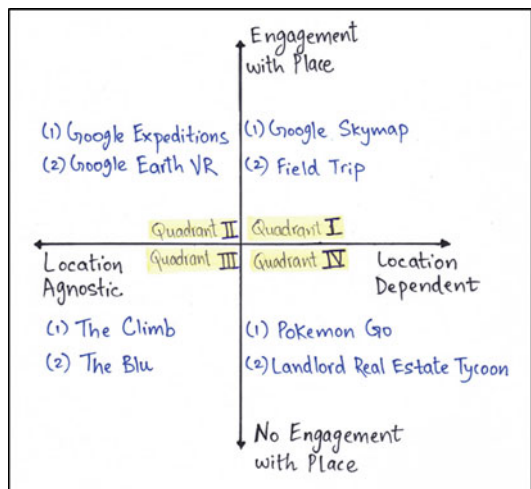 Engagement
with Place
(1) Google Expeditions
(2) Google Earth VR
(1) Google Skymap
(2) Field Trip
Quadrant II
Quadrant I
Quadrant III
Quadrant IV
Location
Agnostic
Location
Dependent
(1) The Climb
(2) The Blu
(1) Pokemon Go
(2) Landlord Real Estate Tycoon
No Engagement
with Place